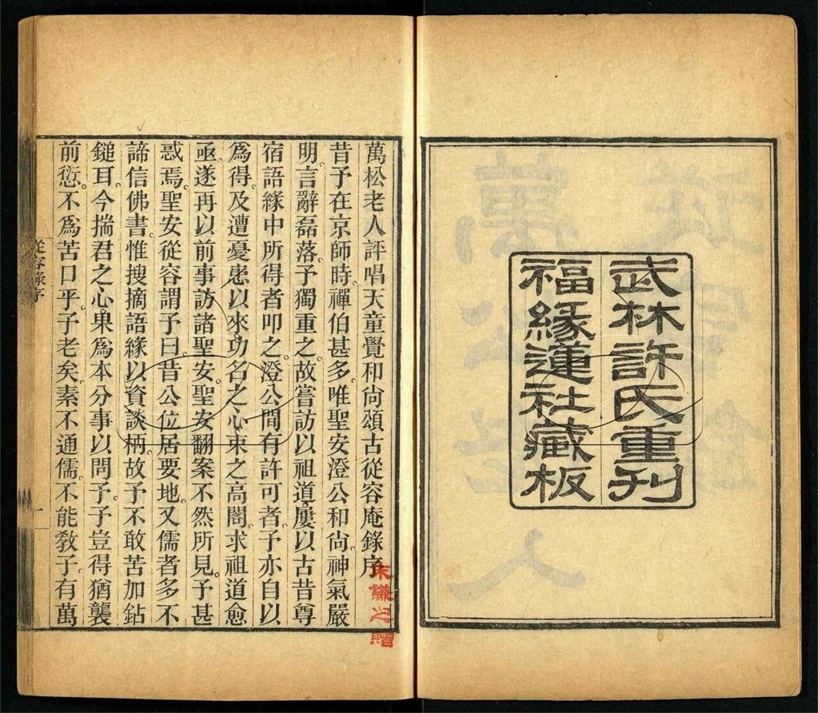 武林許氏重刊
福緣蓮社藏板
萬松老人評唱天童覺和尚頌古從容庵錄序
昔予在京師時。禪伯甚多。唯聖安澄公和尚。神氣嚴
明。言辭磊落。予獨重之。故嘗訪以祖道。屢以古昔尊
宿語緣中所得者叩之。澄公間有許可者。予亦自以
爲得。及遭憂患以來。功名之心束之高閣。求祖道愈
亟。遂再以前事訪諸聖安。聖安翻案不然所見。予甚
惑焉。聖安從容謂予曰。昔公位居要地。又儒者多不
諦信佛書。惟搜摘語緣。以資談柄。故予不敢苦加鉆
鎚耳。今揣君之心。果爲本分事以問予。予豈得猶襲
前愆。不爲苦口乎。予老矣。素不通儒。不能敎子。有萬
從容錄序
一
朱謙之贈